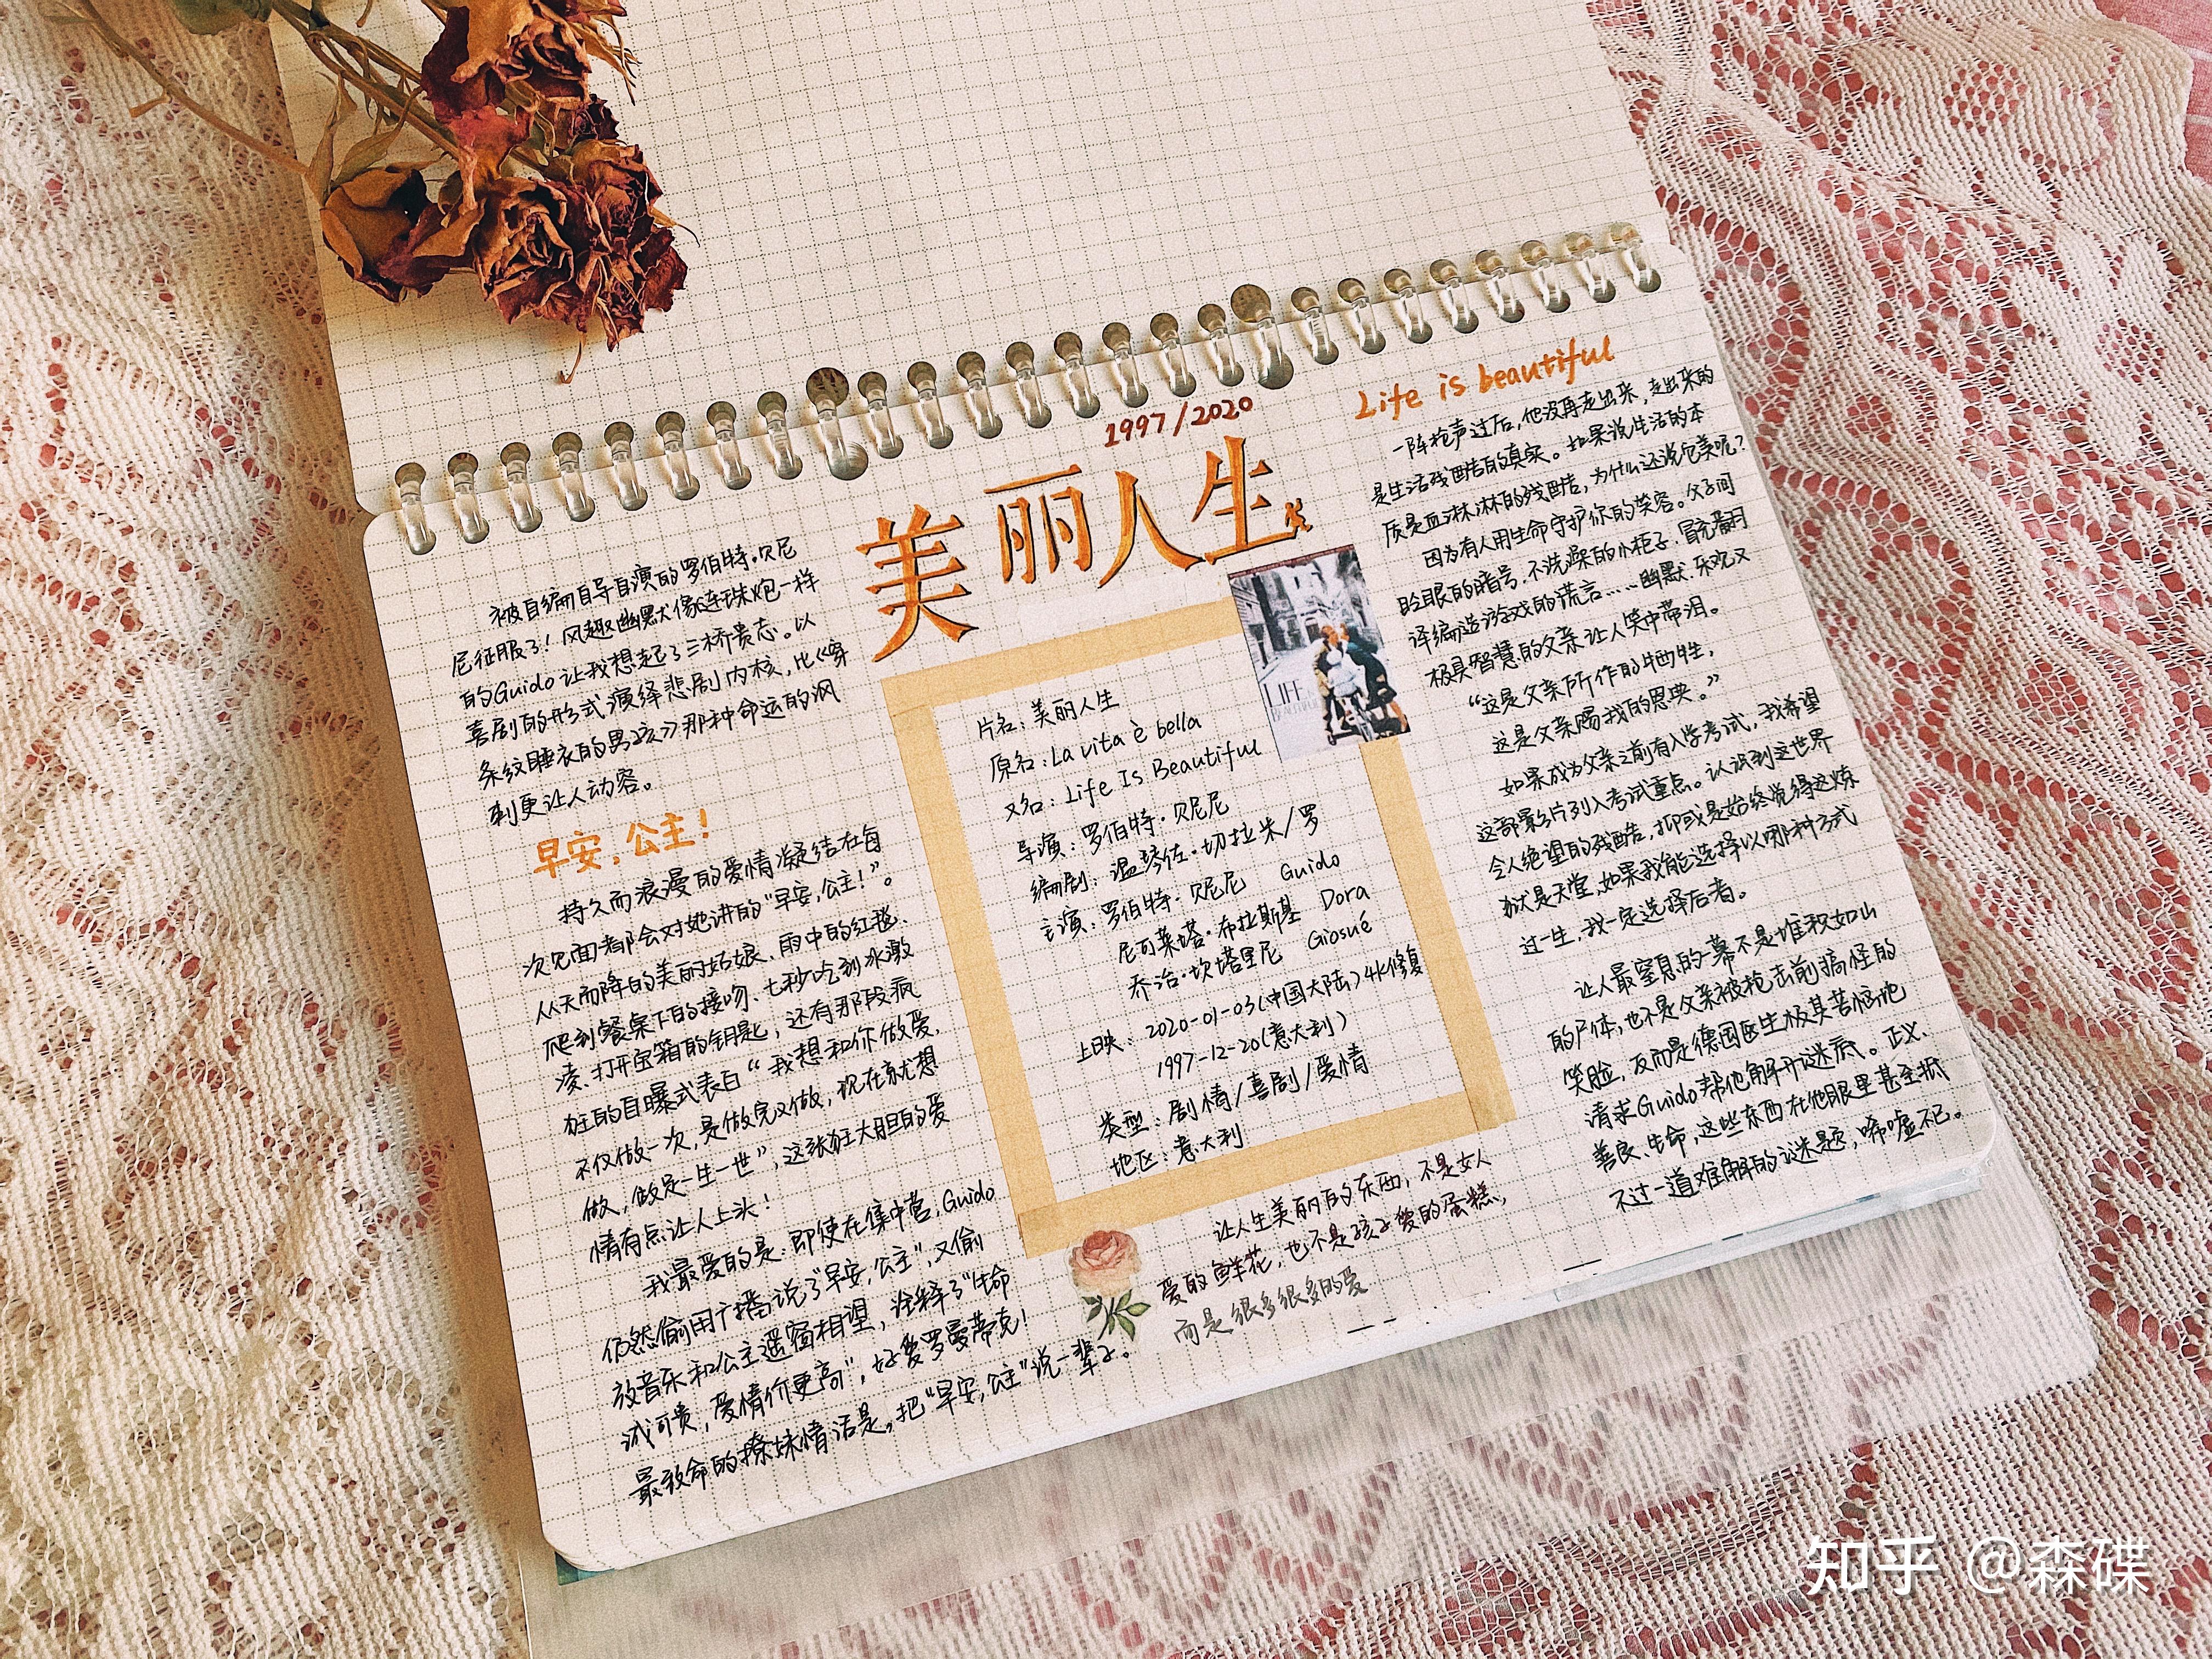 1997/2020
美丽人生
被自编自导自演的罗伯特·贝尼
尼征服了！风趣幽默像连珠炮一样
的Guido让我想起了三桥贵志。以
喜剧的形式演绎悲剧内核，比《穿
条纹睡衣的男孩》那种命运的讽
刺更让人动容。
早安，公主！
持久而浪漫的爱情凝结在每
次见面都会对她讲的“早安，公主！”。
从天而降的美丽姑娘、雨中的红毯、
爬到餐桌下的接吻、七秒吃到冰激
凌、打开宝箱的钥匙，还有那段疯
狂的自曝式表白“我想和你做爱，
不仅做一次，是做完又做，现在就想
做，做足一生一世”，这张狂大胆的爱
情有点让人上头！
我最爱的是：即使在集中营，Guido
仍然偷用广播说了“早安，公主”，又偷
放音乐和公主遥窗相望，诠释了“生命
诚可贵，爱情价更高”，好爱罗曼蒂克！
最致命的撩妹情话是，把“早安，公主”说一辈子。
片名：美丽人生
原名：La vita è bella
又名：Life Is Beautiful
导演：罗伯特·贝尼尼
编剧：温琴佐·切拉米/罗
主演：罗伯特·贝尼尼 Guido
尼可莱塔·布拉斯基 Dora
乔治·坎塔里尼 Giosué
上映：2020-01-03（中国大陆）4K修复
1997-12-20（意大利）
类型：剧情/喜剧/爱情
地区：意大利
LIFE
IS
BEAUTIFUL
让人生美丽的东西，不是女人
爱的鲜花，也不是孩子爱的蛋糕，
而是很多很多的爱
Life is beautiful
一阵枪声过后，他没再走出来，走出来的
是生活残酷的真实。如果说生活的本
质是血淋淋的残酷，为什么还说它美呢？
因为有人用生命守护你的笑容。父子间
眨眼的暗号、不洗澡的小柜子、冒充翻
译编造游戏的谎言……幽默、乐观又
极具智慧的父亲让人笑中带泪。
“这是父亲所作的牺牲，
这是父亲赐我的恩典。”
如果成为父亲之前有入学考试，我希望
这部影片列入考试重点。认识到这世界
令人绝望的残酷，抑或是始终觉得这炼
狱是天堂，如果我能选择以哪种方式
过一生，我一定选择后者。
让人最窒息的一幕不是堆积如山
的尸体，也不是父亲被枪击前搞怪的
笑脸，反而是德国医生极其苦恼地
请求Guido帮他解开谜底。正义、
善良、生命，这些东西在他眼里甚至抵
不过一道难解的谜题，唏嘘不已。
知乎 @森碟